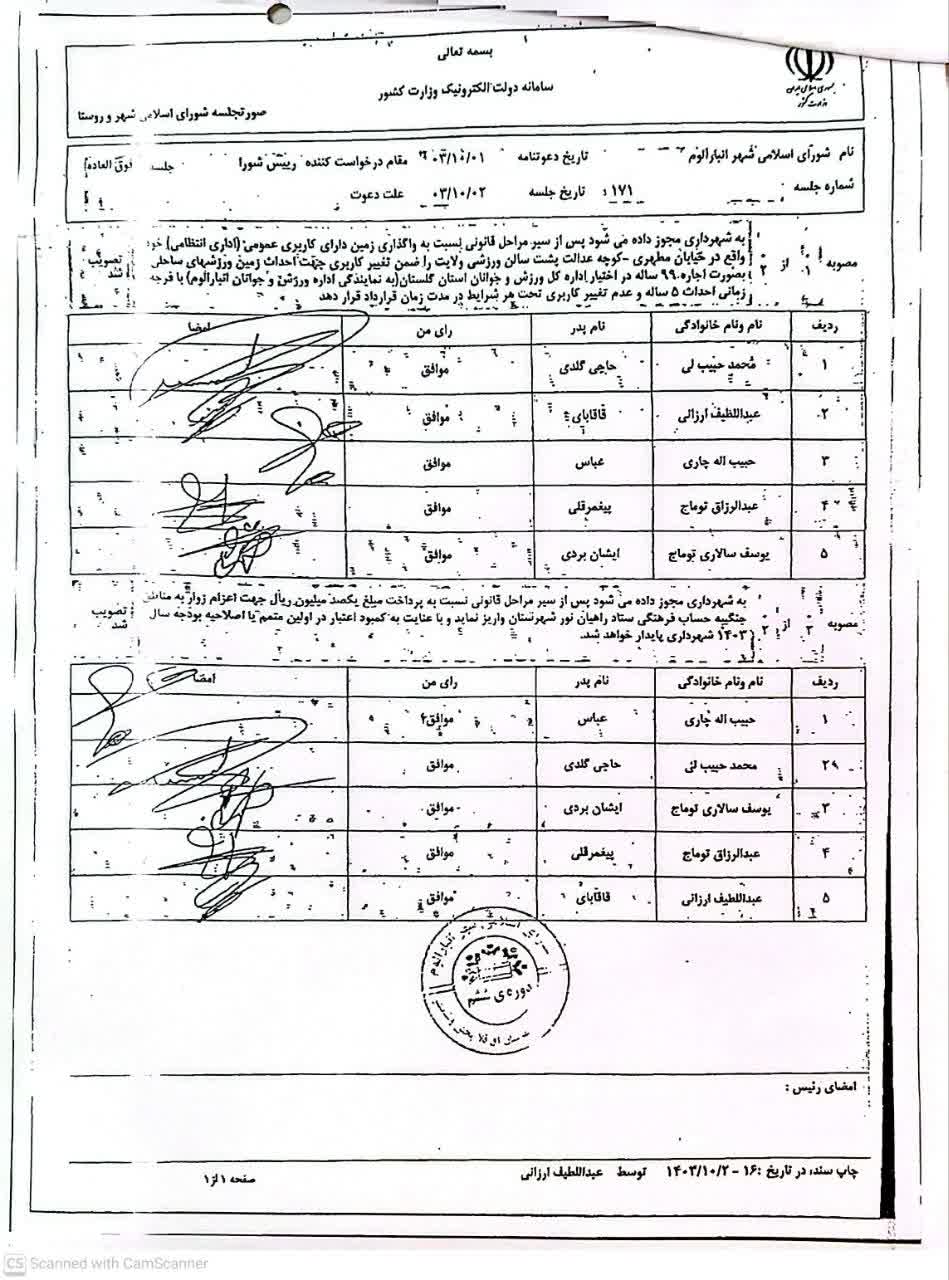 بسمه تعالی
سامانه دولت الکترونیک وزارت کشور
صورتجلسه شورای اسلامی شهر و روستا
وزارت کشور
نام شورای اسلامی شهر انبارالوم تاریخ دعوتنامه ۰۳/۱۰/۰۱ مقام درخواست کننده رییس شورا جلسه فوق العاده
شماره جلسه ۱۷۱ تاریخ جلسه ۰۳/۱۰/۰۲ علت دعوت
به شهرداری مجوز داده می شود پس از سیر مراحل قانونی نسبت به واگذاری زمین دارای کاربری عمومی (اداری انتظامی)
مصوبه ۱ از ۲ واقع در خیابان مطهری -کوچه عدالت پشت سالن ورزشی ولایت را ضمن تغییر کاربری جهت احداث زمین ورزشهای ساحلی تصویب شد
بصورت اجاره ۹۹ ساله در اختیار اداره کل ورزش و جوانان استان گلستان(به نمایندگی اداره ورزش و جوانان انبارالوم) با فرجه
زمانی احداث ۵ ساله و عدم تغییر کاربری تحت هر شرایط در مدت زمان قرارداد قرار دهد
ردیف نام ونام خانوادگی نام پدر رای من امضا
۱ محمد حبیب لی حاجی گلدی موافق
۲ عبداللطیف ارزانی قاقابای موافق
۳ حبیب اله چاری عباس موافق
۴ عبدالرزاق توماج پیغمرقلی موافق
۵ یوسف سالاری توماج ایشان بردی موافق
به شهرداری مجوز داده می شود پس از سیر مراحل قانونی نسبت به پرداخت مبلغ یکصد میلیون ریال جهت اعزام زوار به مناطق
مصوبه از ۲ جنگیبه حساب فرهنگی ستاد راهیان نور شهرستان واریز نماید و با عنایت به کمبود اعتبار در اولین متمم یا اصلاحیه بودجه سال تصویب شد
۱۴۰۳ شهرداری پایدار خواهد شد.
ردیف نام ونام خانوادگی نام پدر رای من امضا
۱ حبیب اله چاری عباس موافق
۲ محمد حبیب لی حاجی گلدی موافق
۳ یوسف سالاری توماج ایشان بردی موافق
۴ عبدالرزاق توماج پیغمرقلی موافق
۵ عبداللطیف ارزانی قاقابای موافق
دوره ی ششم
امضای رئیس :
چاپ سند، در تاریخ :۱۶ - ۱۴۰۳/۱۰/۲ توسط عبداللطیف ارزانی صفحه ۱ از ۱
CS Scanned with CamScanner